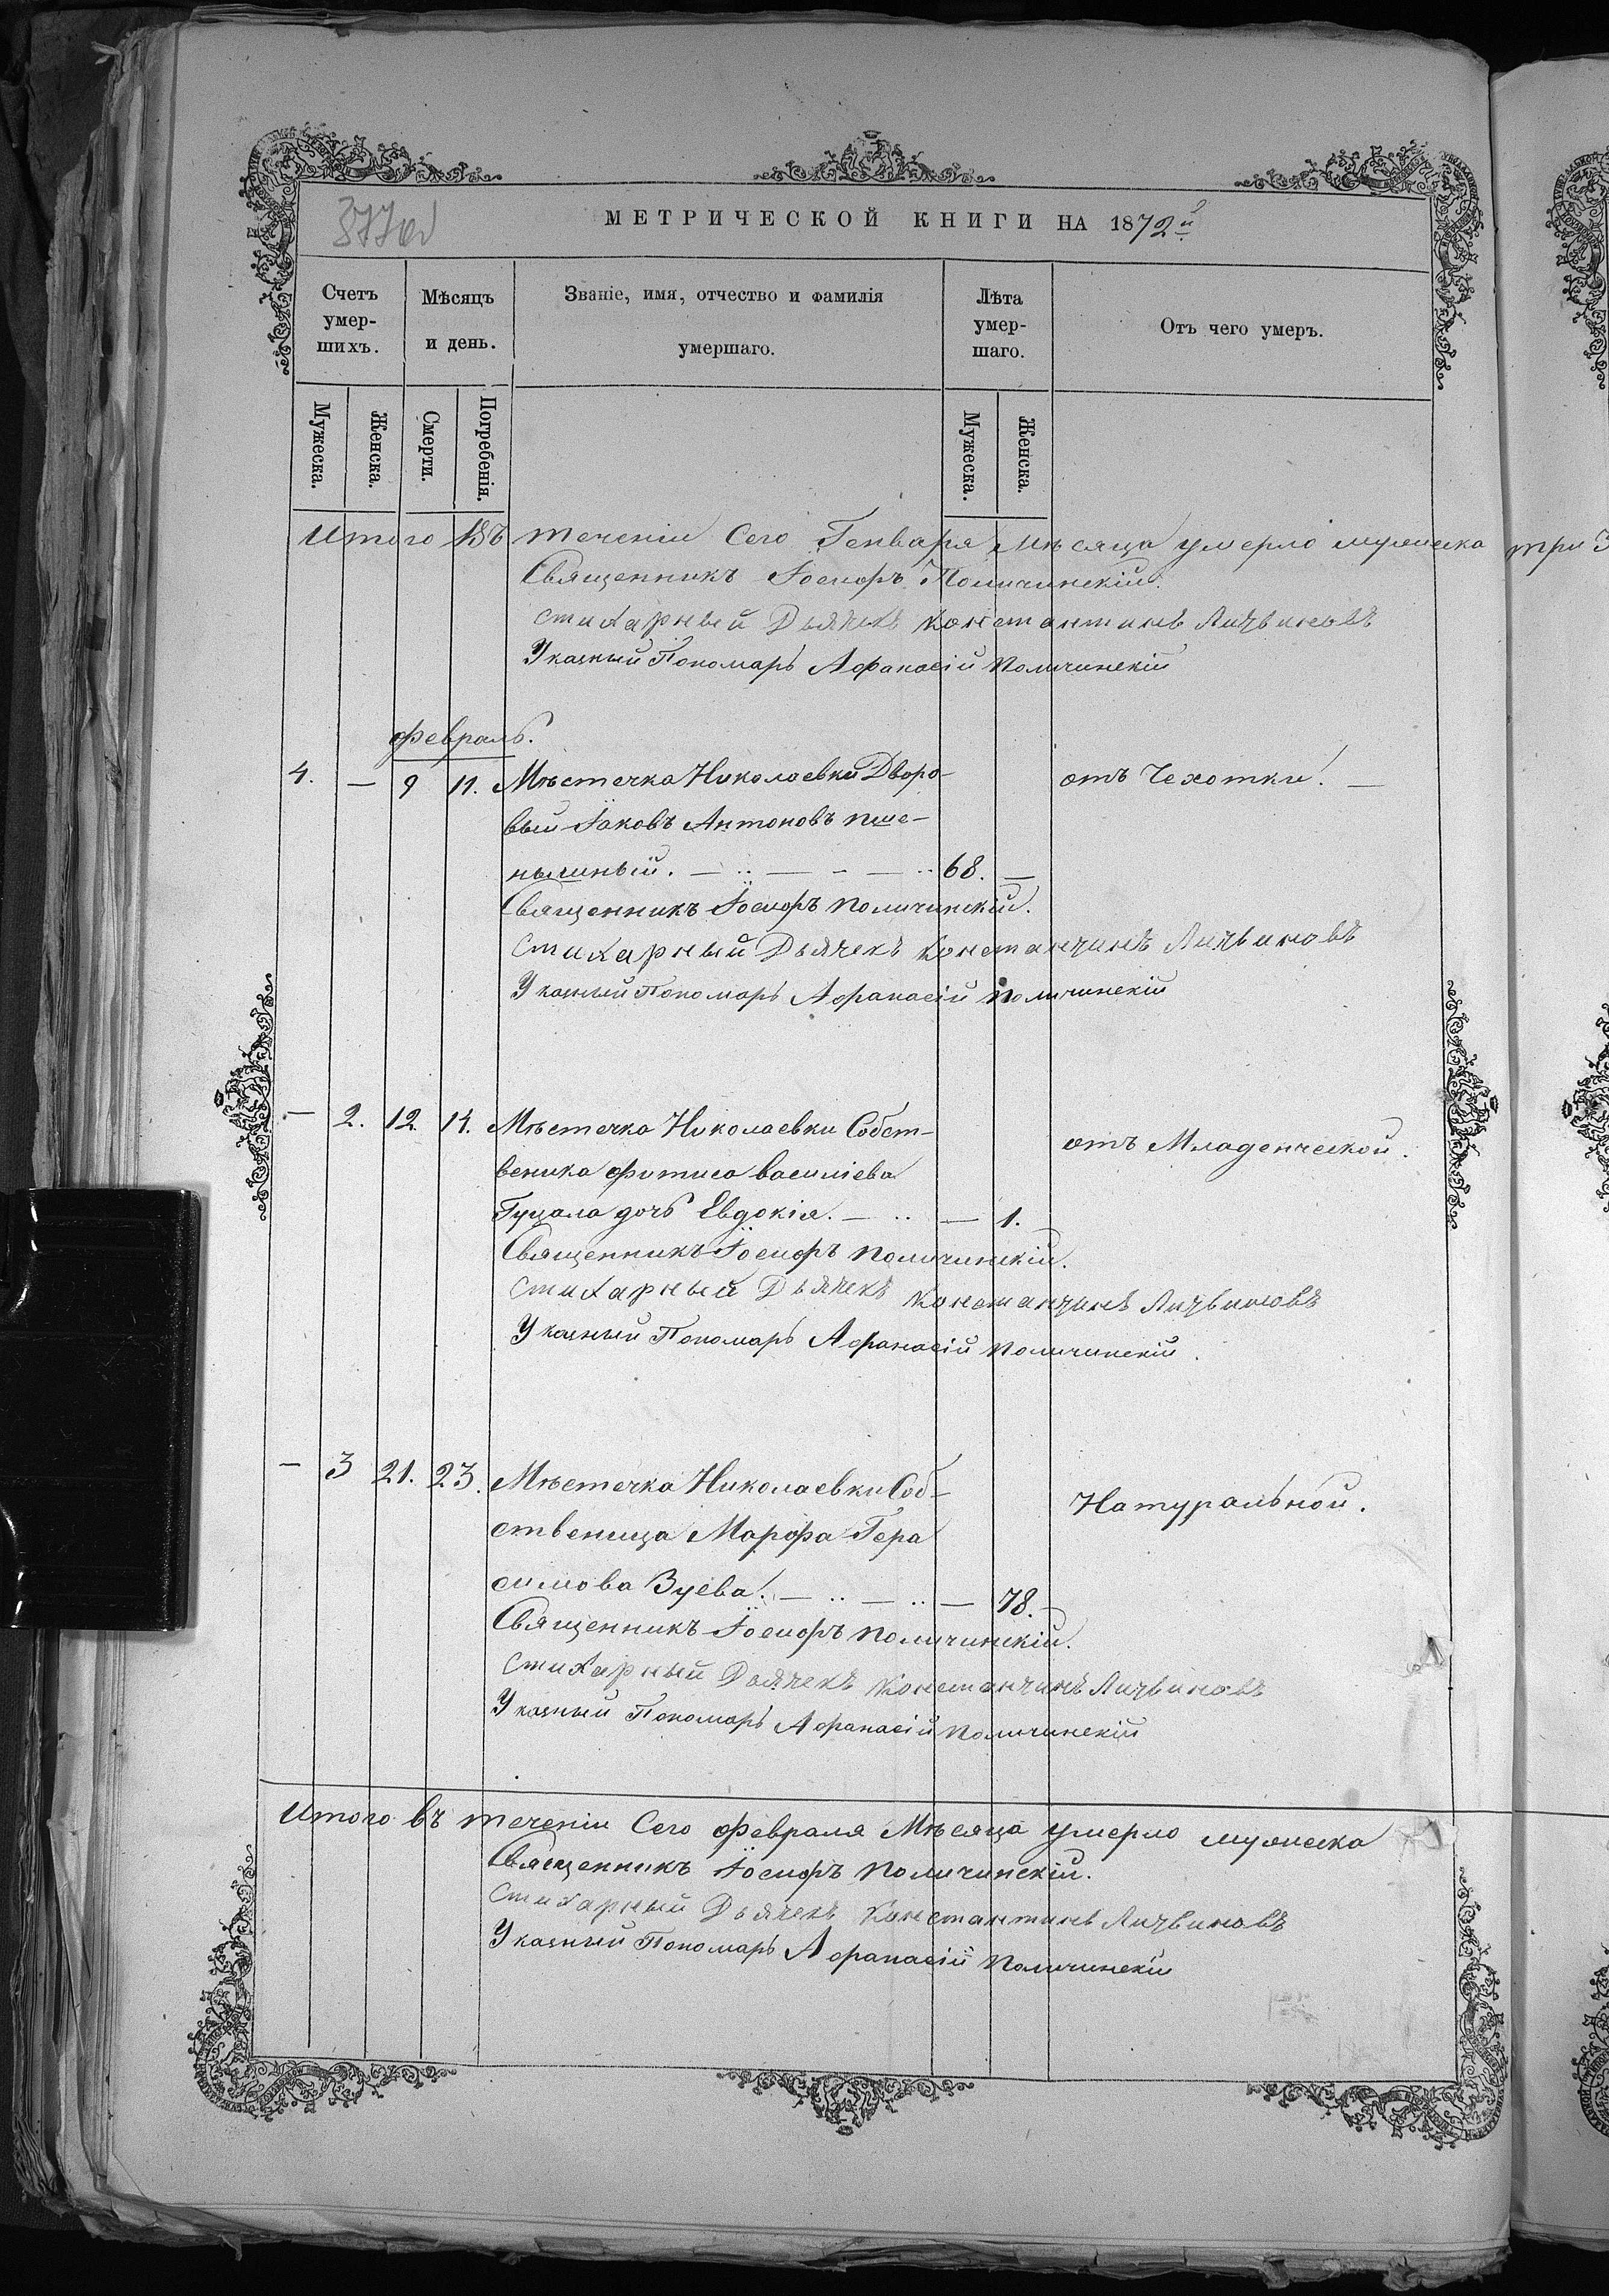 МЕТРИЧЕСКОЙ КНИГИ НА 1872й
Счетъ умер-шихъ.
Мѣсяцъ и день.
Званіе, имя, отчество и фамилія умершаго.
Лѣта умер-шаго.
Отъ чего умеръ.
Мужеска.
Женска.
Смерти.
Погребенія.
Мужеска.
Женска.
Итого въ теченіи Сего Генваря Мѣсяца умерло мужеска три 3
Священникъ Іосифъ Поличинскій.
Стихарный Дьячекъ Константинъ Литвиновъ
Указный Пономарь Афанасій Поличинскій
Февраль.
4. — 9 11. Мѣстечка Николаевки Дворо- отъ Чехотки. —
вый Іаковъ Антоновъ Пше-
нышный. — 68. —
Священникъ Іосифъ Поличинскій.
Стихарный Дьячекъ Константинъ Литвиновъ
Указный Пономарь Афанасій Поличинскій
— 2. 12. 14. Мѣстечка Николаевки Собст- отъ Младенческой.
веника Василіева
Гуцала дочь Евдокія. — 1. —
Священникъ Іосифъ Поличинскій.
Стихарный Дьячекъ Константинъ Литвиновъ
Указный Пономарь Афанасій Поличинскій.
— 3 21. 23. Мѣстечка Николаевки Соб- Натуральной.
ственица Марфа Гера
симова Зуева. — 78. —
Священникъ Іосифъ Поличинскій.
Стихарный Дьячекъ Константинъ Литвиновъ
Указный Пономарь Афанасій Поличинскій
Итого въ теченіи Сего Февраля Мѣсяца умерло мужеска
Священникъ Іосифъ Поличинскій.
Стихарный Дьячекъ Константинъ Литвиновъ
Указный Пономарь Афанасій Поличинскій